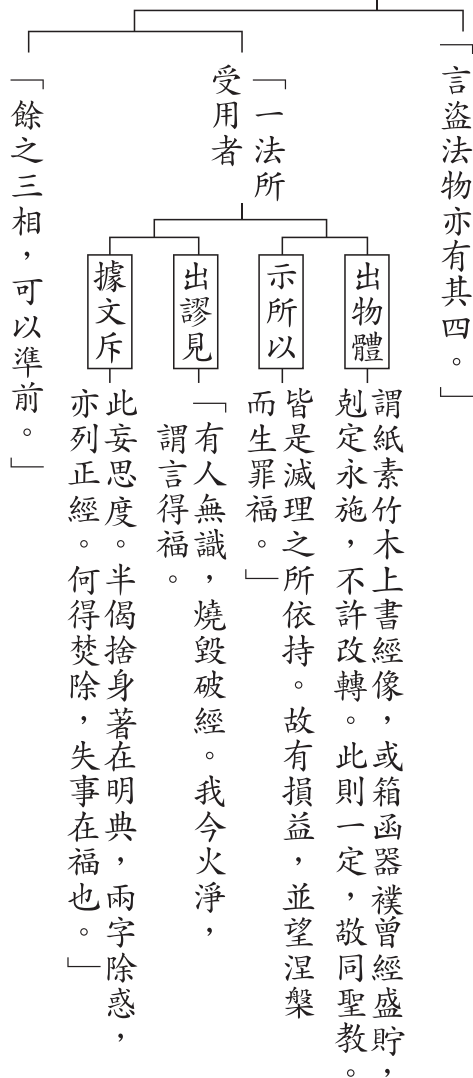 「言盜法物亦有其四。」
「一法所
受用者
出物體
謂紙素竹木上書經像，或箱函器襆曾經盛貯，
剋定永施，不許改轉。此則一定，敬同聖教。
示所以
皆是滅理之所依持。故有損益，並望涅槃
而生罪福。」
出謬見
「有人無識，燒毀破經。我今火淨，
謂言得福。
據文斥
此妄思度。半偈捨身著在明典，兩字除惑，
亦列正經。何得焚除，失事在福也。」
「餘之三相，可以準前。」